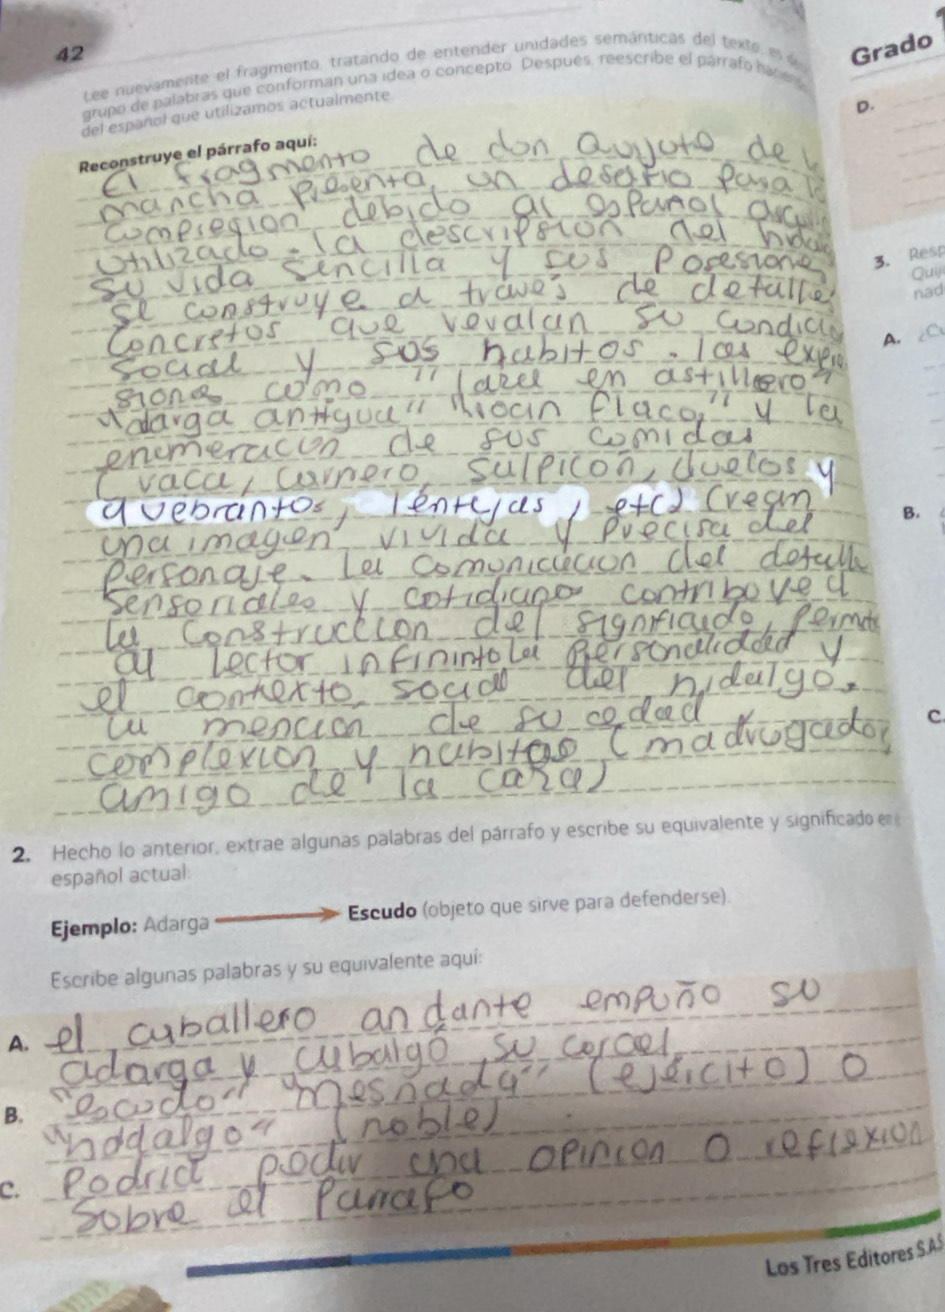 42
Grado
Lee nuevamente el fragmento, tratando de entender unidades semánticas del texto, es
grupo de palabras que conforman una idea o concepto. Después, reescribe el párrafo
del español que utilizamos actualmente.
D.
Reconstruye el párrafo aquí:
El fragmento de don quijote de
mancha presenta, un desafio para
compresion debido al español
utilizado. la descripsion del
su vida sencilla y sus posesiones
se construye a través de detalle
concretos que revalan su condicio
social y sus habitos. las expre
siones como "lanza en astillero"
"adarga antigua" "rocin flaco," y la
enumeracion de sus comidas
(vaca, carnero, sulpicon, duelos y
quebrantos, lentejas, etc) crean
una imagen vivida y precisa del
personaje. La comunicacion del detalle
sensoriales y cotidianos
la construccion del significado, permite
al lector la personalidad y
el contexto social del hidalgo.
La mencion de su edad
complexion y habitos (madrugador
amigo de la caza)
3.
Quij
nad
A.
B.
C.
2. Hecho lo anterior, extrae algunas palabras del párrafo y escribe su equivalente y significado en
español actual:
Ejemplo: Adarga Escudo (objeto que sirve para defenderse).
Escribe algunas palabras y su equivalente aquí:
A. el caballero andante empuño su
adarga y cabalgó su corcel
B. "escudo" "mesnada" (ejercito) o
"hidalgo" (noble)
C. Podria poder una opinion o reflexion
sobre el Parrafo
Los Tres Editores S.AS